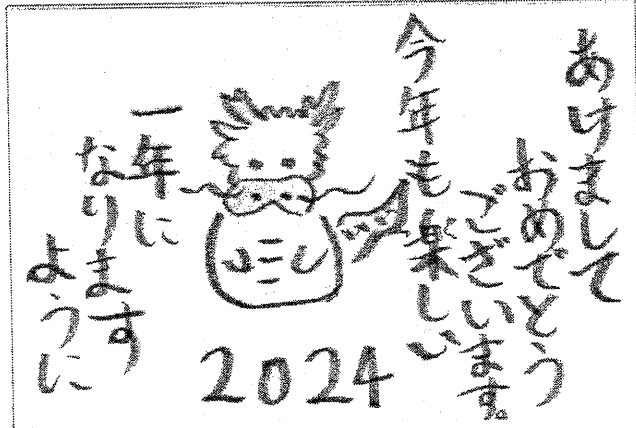 あけまして
おめでとう
ございます。
今年も楽しい
一年に
なります
ように
2024